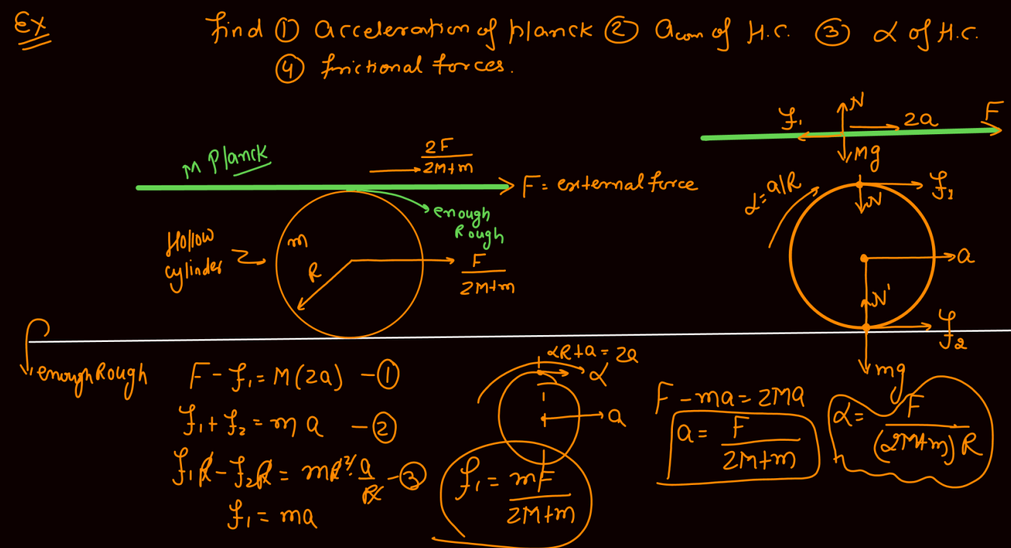 Ex
find ① Acceleration of planck ② Acom of H.C. ③ α of H.C.
④ frictional forces.
M Planck
2F/(2M+m)
F = external force
enough Rough
Hollow cylinder
m
R
F/(2M+m)
enough Rough
f₁
N
2a
F
Mg
α=a/R
f₁
N
a
N'
f₂
mg
F - f₁ = M(2a) -①
f₁ + f₂ = m a -②
f₁R - f₂R = mR² a/R -③
f₁ = ma
αR + a = 2a
α
a
f₁ = mF/(2M+m)
F - ma = 2Ma
a = F/(2M+m)
α = F/((2M+m)R)